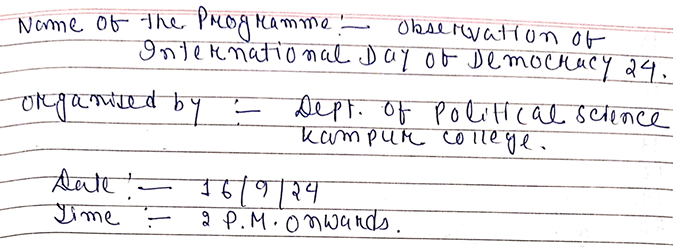 Name of the Programme:- Observation of
International Day of Democracy 24.
Organised by :- Dept. of Political Science
Kampur College.
Date :- 16/9/24
Time :- 2 P.M. Onwards.